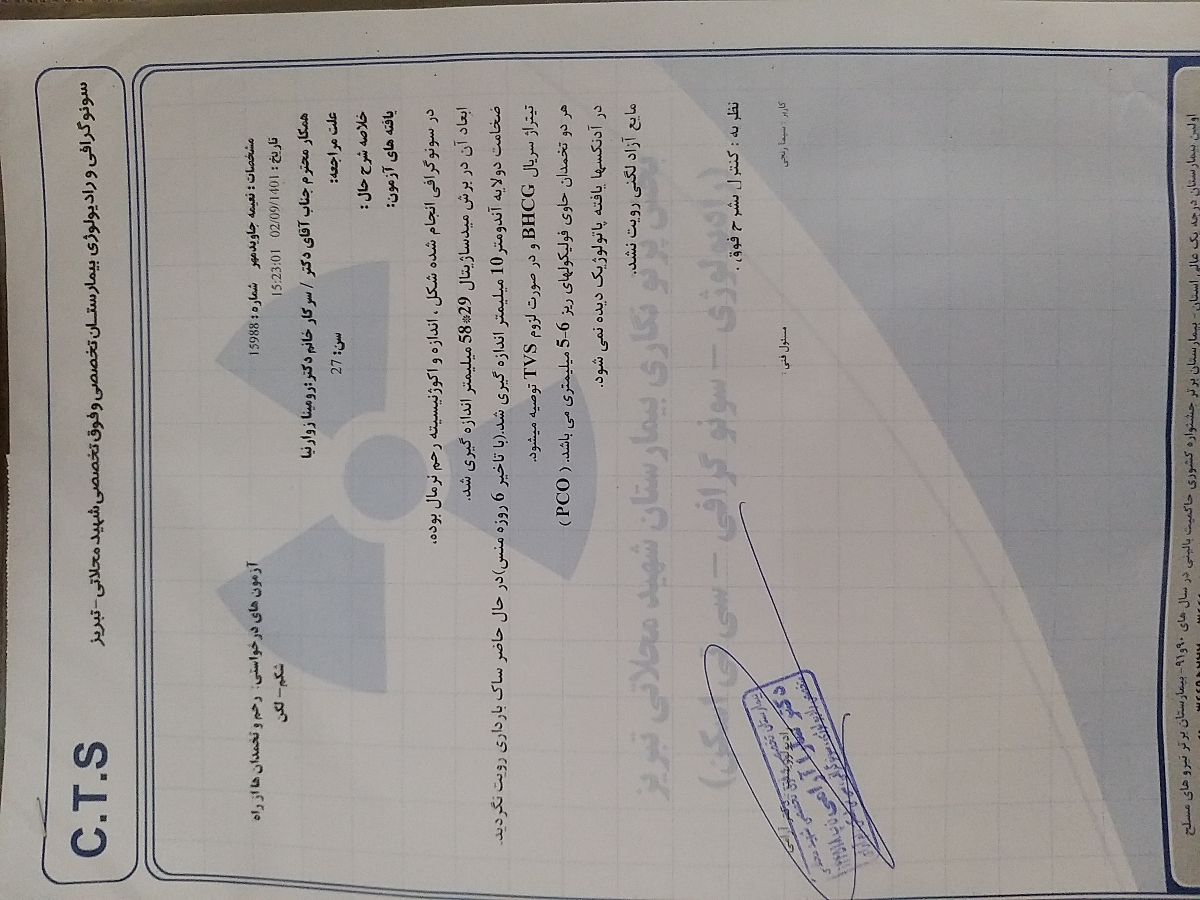 سونوگرافی و رادیولوژی بیمارستان تخصصی وفوق تخصصی شهید محلاتی - تبریز
C.T.S
مشخصات : نعیمه جاویدمهر شماره : 15988
آزمون های درخواستی: رحم و تخمدان ها از راه شکم – لگن
تاریخ : 02/09/1401 15:23:01
همکار محترم جناب آقای دکتر / سرکار خانم دکتر:رومینا زوارنیا
علت مراجعه: سن: 27
خلاصه شرح حال :
یافته های آزمون:
در سونوگرافی انجام شده شکل ، اندازه و اکوژنیسیته رحم نرمال بوده،
ابعاد آن در برش میدساژیتال 29*58 میلیمتر اندازه گیری شد.
ضخامت دولایه آندومتر 10 میلیمتر اندازه گیری شد.(با تاخیر 6 روزه منس)در حال حاضر ساک بارداری رویت نگردید.
تیتراژ سریال BHCG و در صورت لزوم TVS توصیه میشود.
هر دو تخمدان حاوی فولیکولهای ریز 6-5 میلیمتری می باشد. ( PCO )
در آدنکسها یافته پاتولوژیک دیده نمی شود.
مایع آزاد لگنی رویت نشد.
نظر به : کنترل بشرح فوق .
بخش پرتو نگاری بیمارستان شهید محلاتی تبریز
(رادیولوژی – سونو گرافی – سی تی اسکن)
کاربر : سیما رنجی
مسئول فنی :
اولین بیمارستان درجه یک عالی استان - بیمارستان برتر جشنواره کشوری حاکمیت بالینی در سال های ۹۰و۹۱- بیمارستان برتر نیرو های مسلح